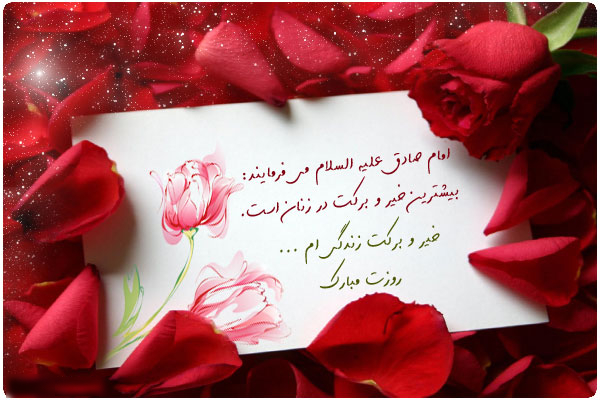 امام صادق علیه السلام می فرمایند:
بیشترین خیر و برکت در زنان است.
خیر و برکت زندگی ام ...
روزت مبارک